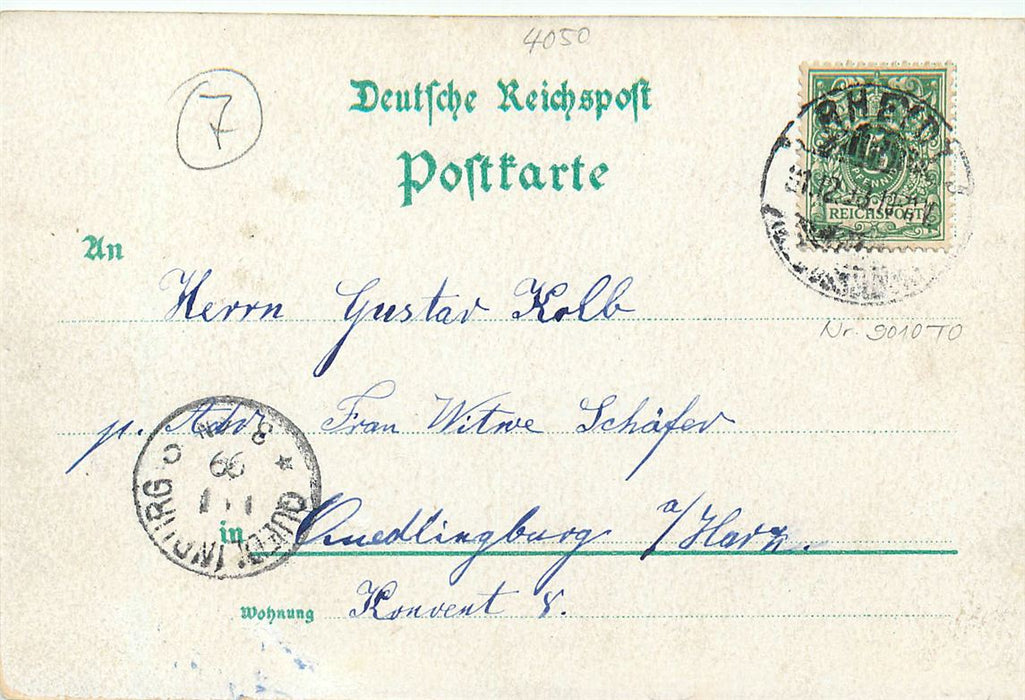 4050
7
Deutsche Reichspost
Postkarte
RHEYDT
REICHSPOST
An
Herrn Gustav Kolb
Nr. 9010-TO
p. Adr. Frau Witwe Schäfer
QUEDLINBURG
99
in Quedlingburg a/Harz.
Wohnung Konvent 8.